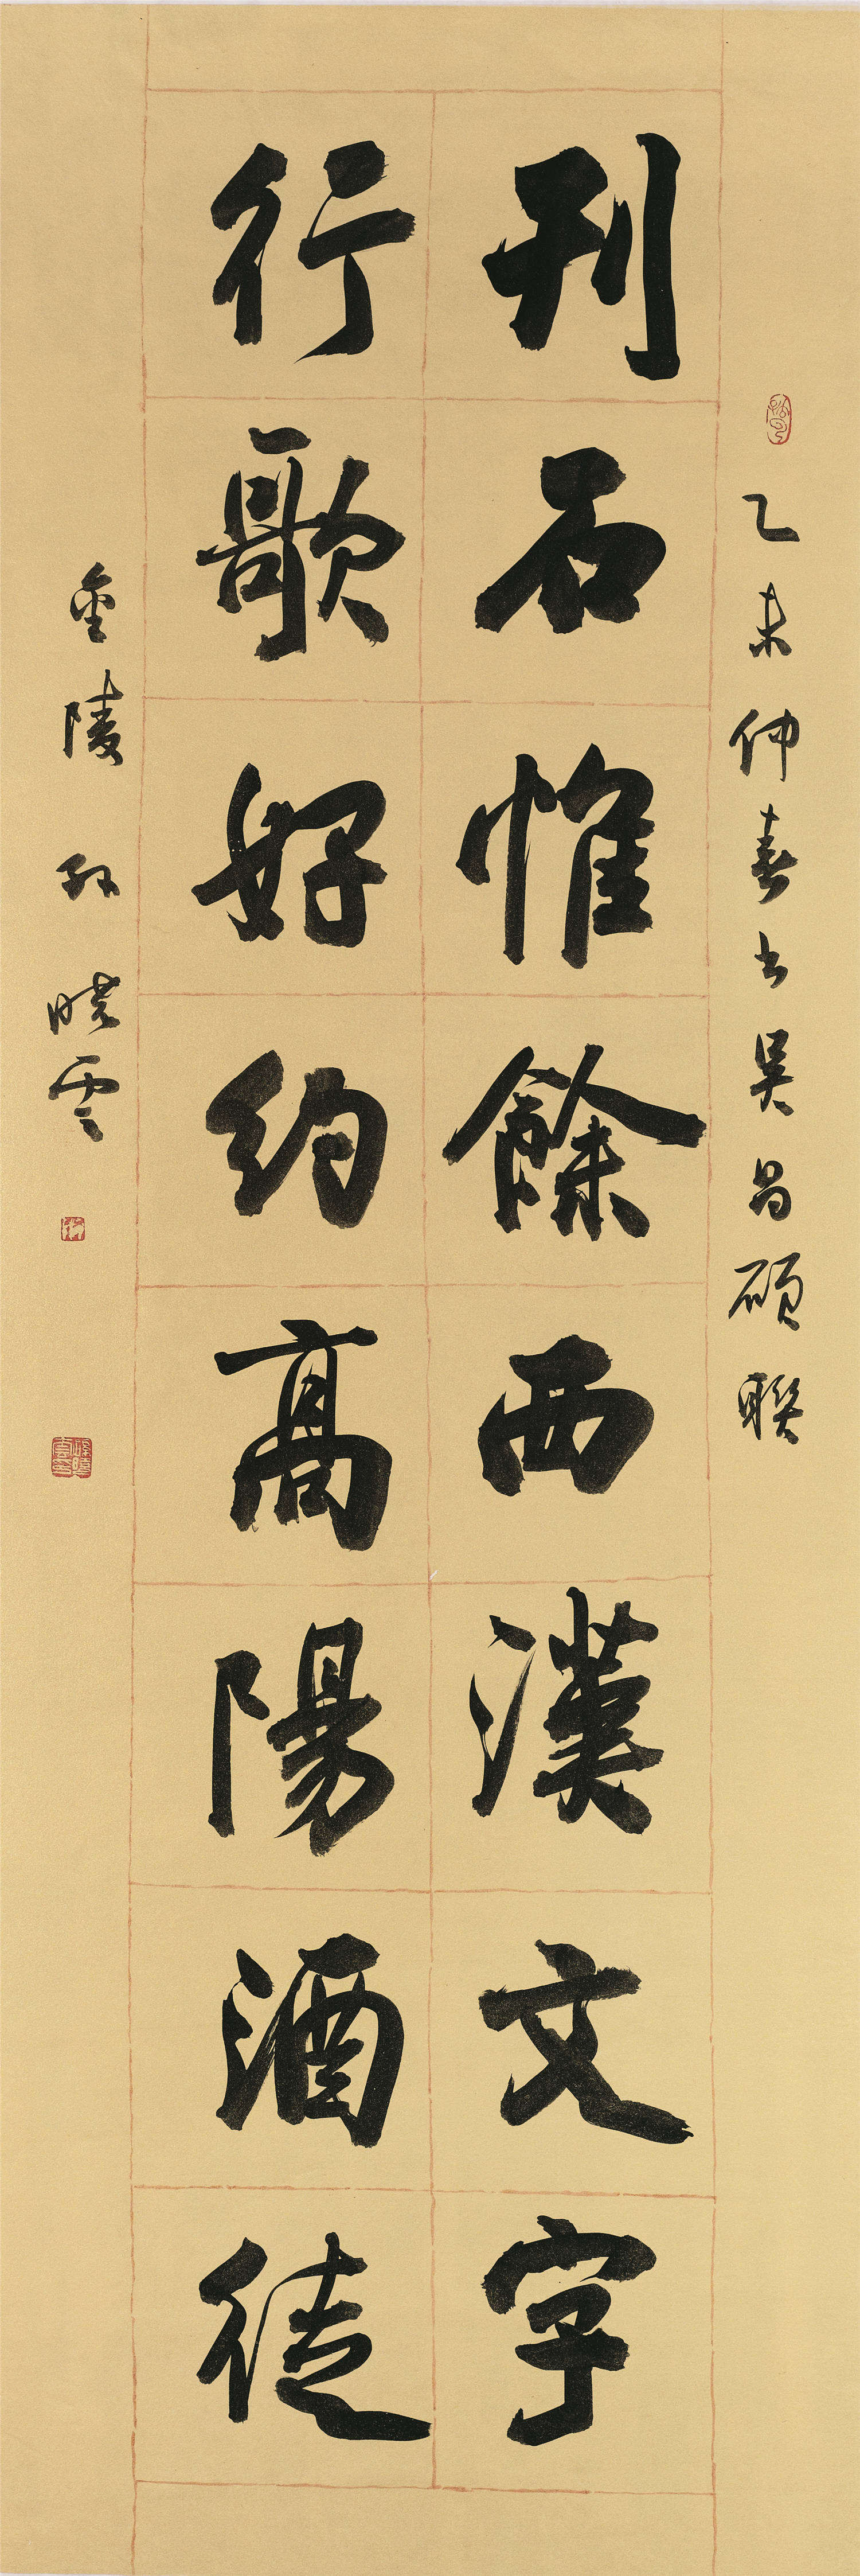 乙未仲春書吴昌碩聯
刊石惟餘西漢文字
行歌好約高陽酒徒
金陵孙晓雲